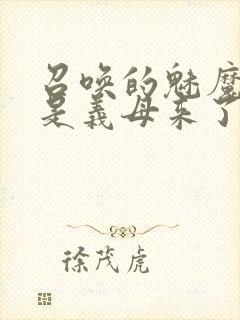 召唤的魅魔
是义母来了
徐茂虎